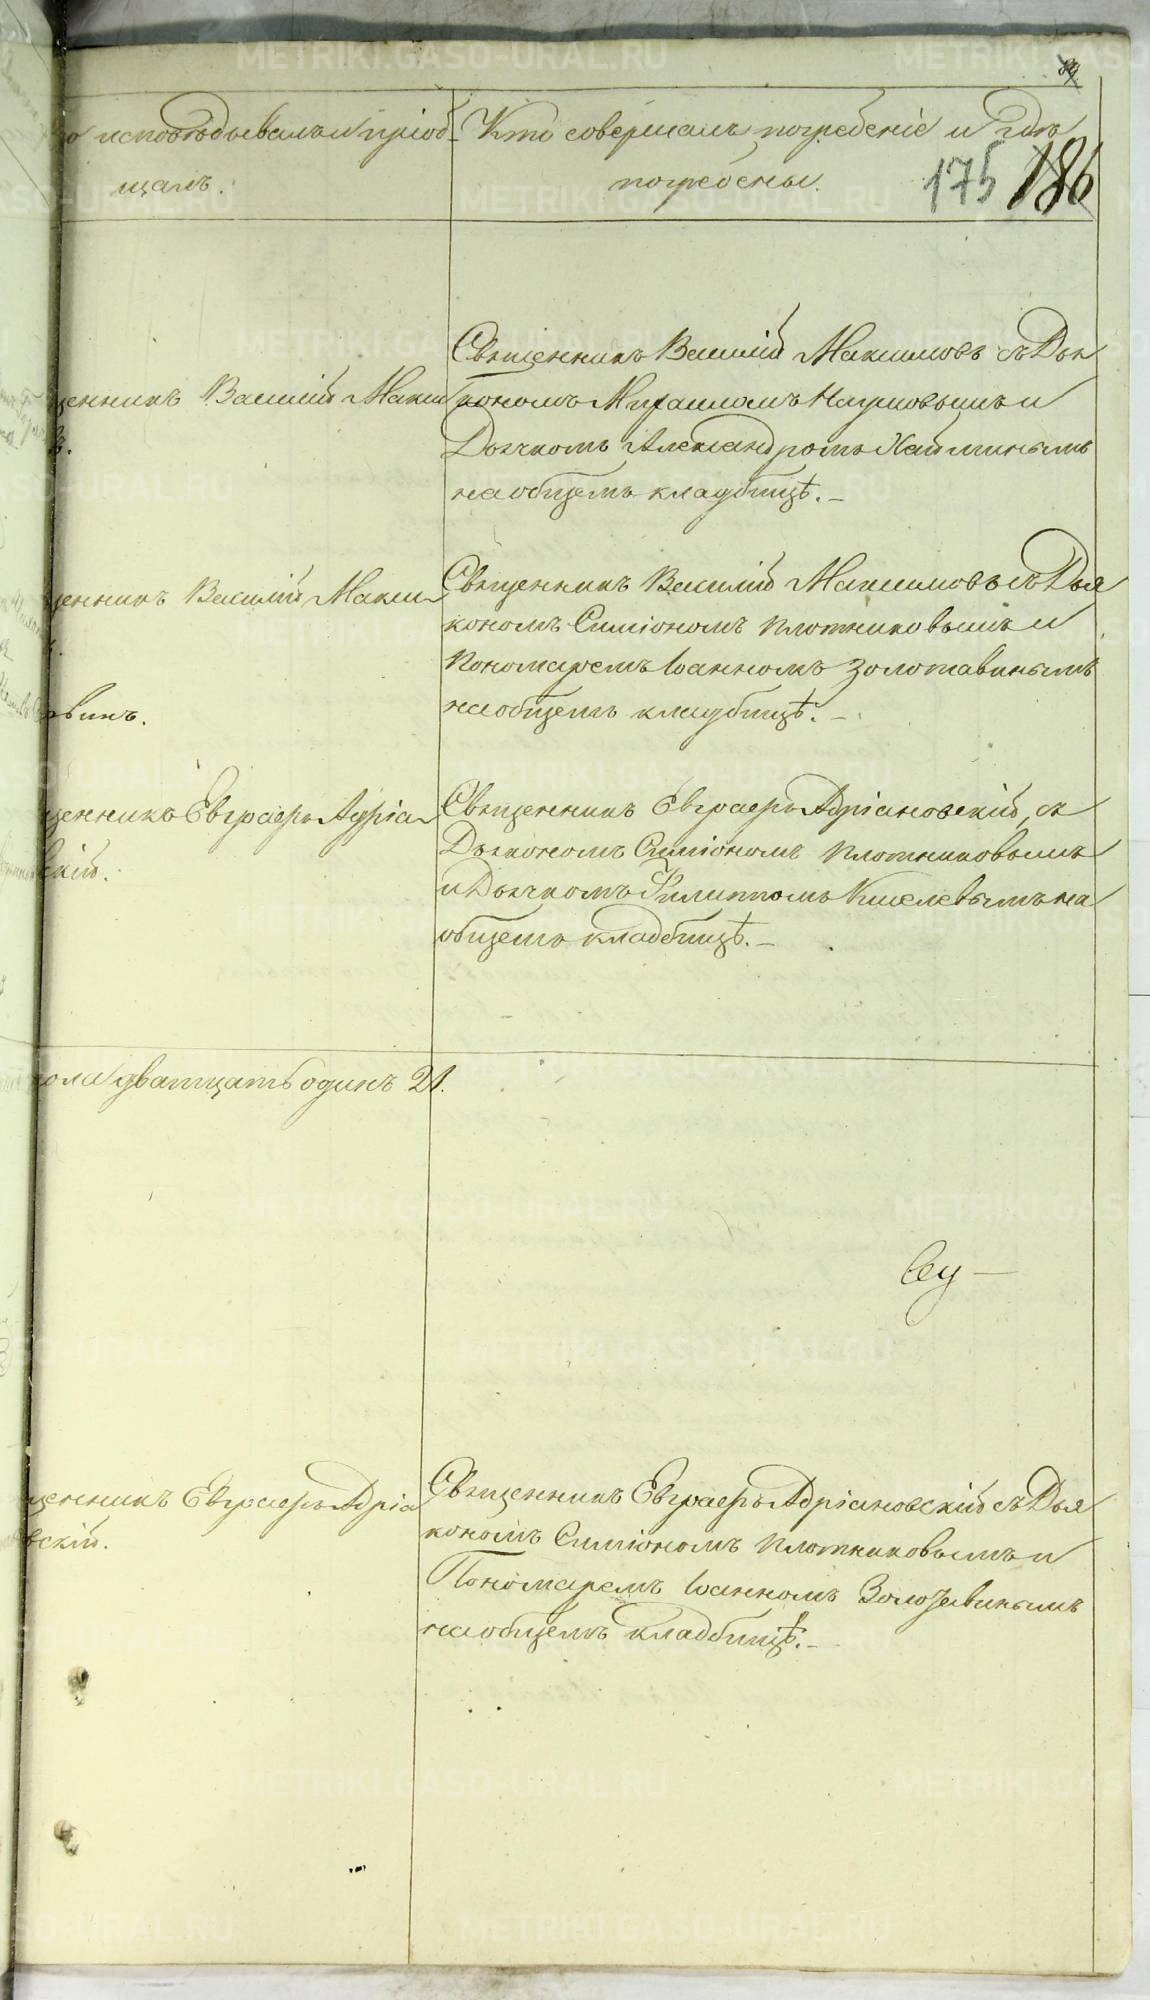 о исповѣдывалъ и пріоб-
щалъ.
Кто совершалъ погребеніе и гдѣ
погребены.
175 186
щенникъ Василій Макси
ъ.
Священникъ Василій Максимовъ съ Дья
кономъ Михаиломъ Наумовымъ и
Дьячкомъ Александромъ
на общемъ кладбищѣ.
щенникъ Василій Макси
овинъ.
Священникъ Василій Максимовъ съ Дья
кономъ Симіономъ Плотниковымъ и
Пономаремъ Іоанномъ Золотавинымъ
на общемъ кладбищѣ.
щенникъ Евграфъ Адріа
вскій.
Священникъ Евграфъ Адріановскій, съ
Дьякономъ Симіономъ Плотниковымъ
и Дьячкомъ Филиппомъ Киселевымъ на
общемъ кладбищѣ.
пола дватцать одинъ 21.
щенникъ Евграфъ Адріа
вскій.
Священникъ Евграфъ Адріановскій съ Дья
кономъ Симіономъ Плотниковымъ и
Пономаремъ Іоанномъ Золотавинымъ
на общемъ кладбищѣ.
METRIKI.GASO-URAL.RU